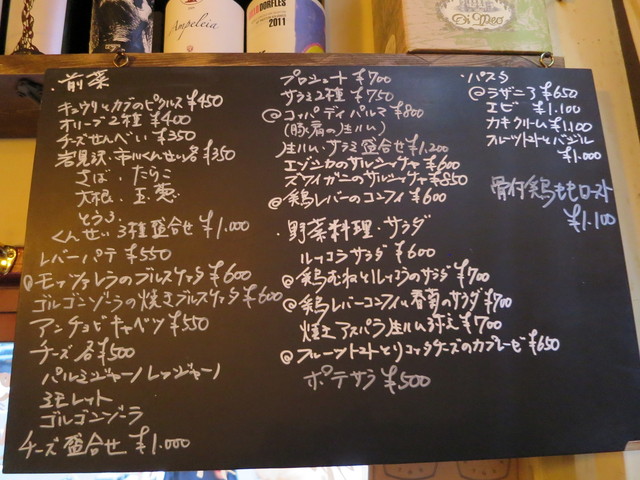 Ampeleia
DORFLES
2011
Di Meo
・前菜
キュウリとカブのピクルス ¥450
オリーブ2種 ¥400
チーズせんべい ¥350
岩見沢・市川くんせい 各¥350
さば・たらこ
大根・玉葱
とうふ・
くんせい3種盛合せ ¥1.000
レバーパテ ¥550
@モッツァレラのブルスケッタ ¥600
ゴルゴンゾーラの焼きブルスケッタ ¥600
アンチョビキャベツ ¥550
チーズ 各¥500
パルミジャーノレッジャーノ
ミモレット
ゴルゴンゾーラ
チーズ盛合せ ¥1.000
プロシュート ¥700
サラミ2種 ¥750
@コッパディパルマ ¥800
(豚肩の生ハム)
生ハム・サラミ盛合せ ¥1,200
エゾシカのサルシッチャ ¥600
ズワイガニのサルシッチャ ¥850
@鶏レバーのコンフィ ¥600
・野菜料理・サラダ
ルッコラサラダ ¥600
@鶏むねとルッコラのサラダ ¥700
@鶏レバーコンフィと春菊のサラダ ¥700
焼きアスパラ生ハム添え ¥700
@フルーツトマトとリコッタチーズのカプレーゼ ¥650
ポテサラ ¥500
・パスタ
@ラザニア ¥650
エビ ¥1.100
カキクリーム ¥1.100
フルーツトマトとバジル
¥1.000
骨付鶏ももロースト
¥1.100